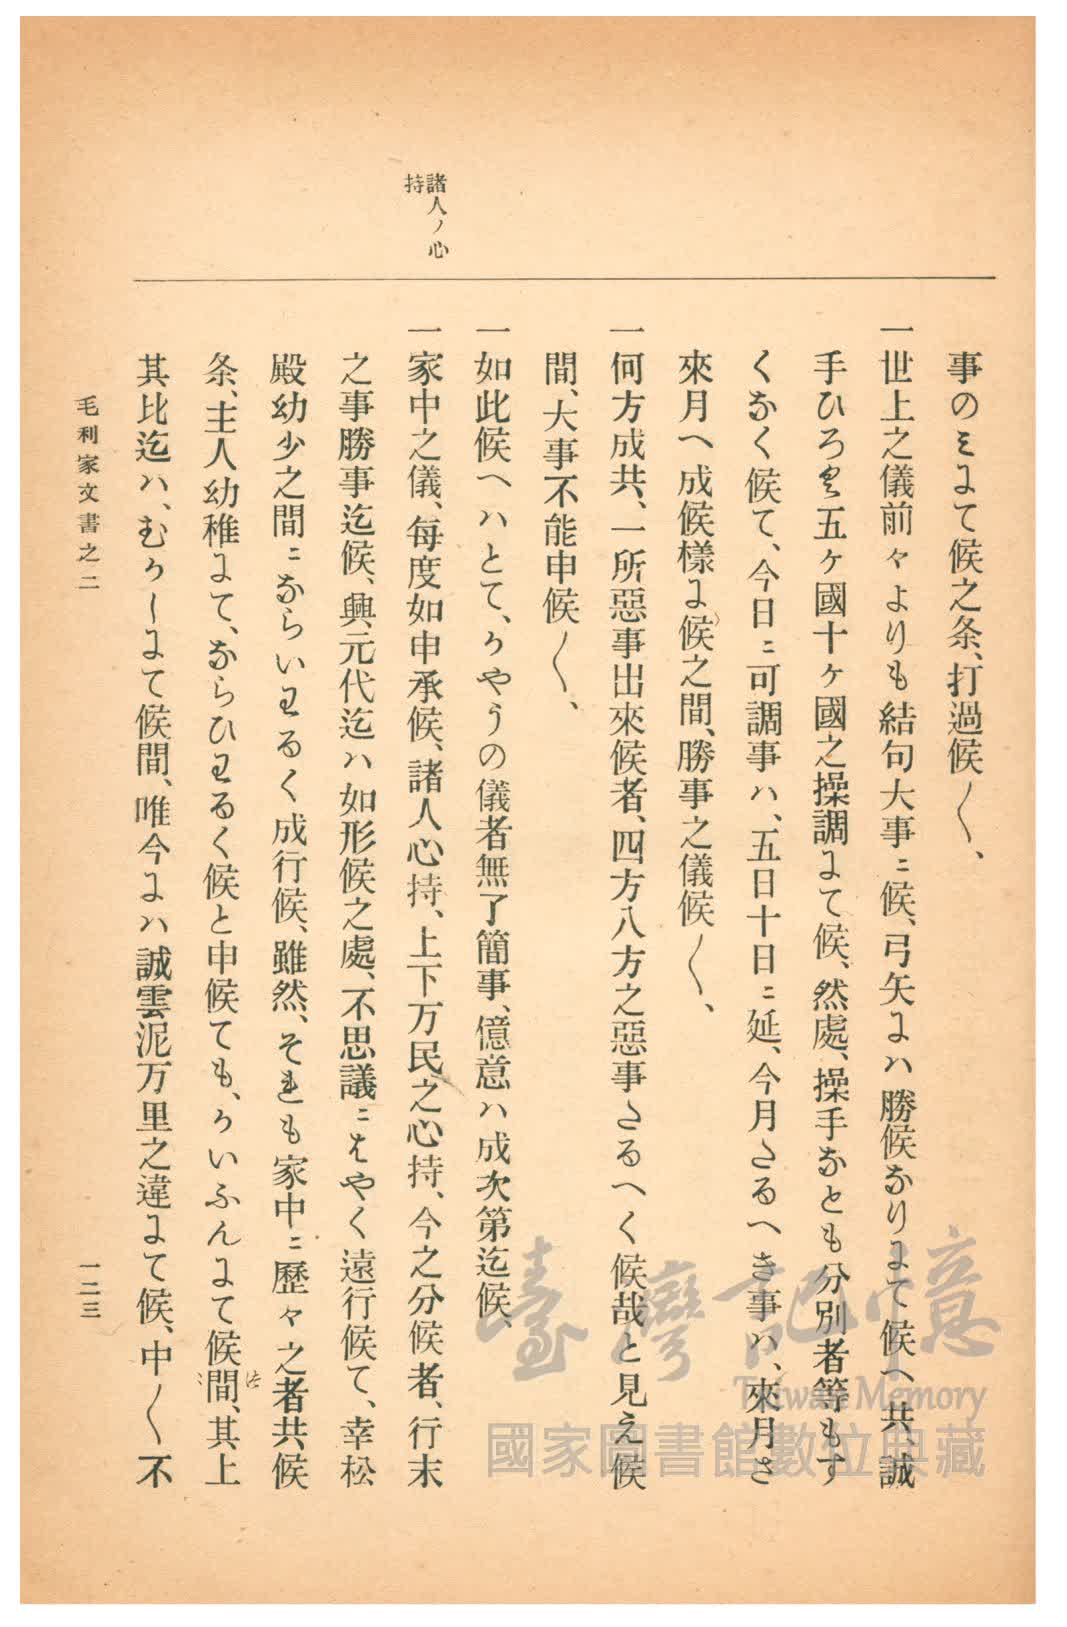 諸人ノ心
持
事のミにて候之条、打過候〳〵、
一世上之儀前々よりも結句大事ニ候、弓矢にハ勝候なりにて候へ共、誠
手ひろく五ケ國十ケ國之操調にて候、然處、操手なとも分別者等もす
くなく候て、今日ニ可調事ハ、五日十日ニ延、今月たるへき事ハ、來月さ
來月へ成候樣に候之間、勝事之儀候〳〵、
一何方成共、一所惡事出來候者、四方八方之惡事たるへく候哉と見え候
間、大事不能申候〳〵、
一如此候へハとて、かやうの儀者無了簡事、億意ハ成次第迄候、
一家中之儀、每度如申承候、諸人心持、上下万民之心持、今之分候者、行末
之事勝事迄候、興元代迄ハ如形候之處、不思議ニはやく遠行候て、幸松
殿幼少之間ニならいわるく成行候、雖然、それも家中ニ歷々之者共候
条、主人幼稚にて、ならひわるく候と申候ても、かいふんにて候間、其上
其比迄ハ、むかしにて候間、唯今にハ誠雲泥万里之違にて候、中〳〵不
毛利家文書之二
一二三
臺灣記憶
Taiwan Memory
國家圖書館數位典藏